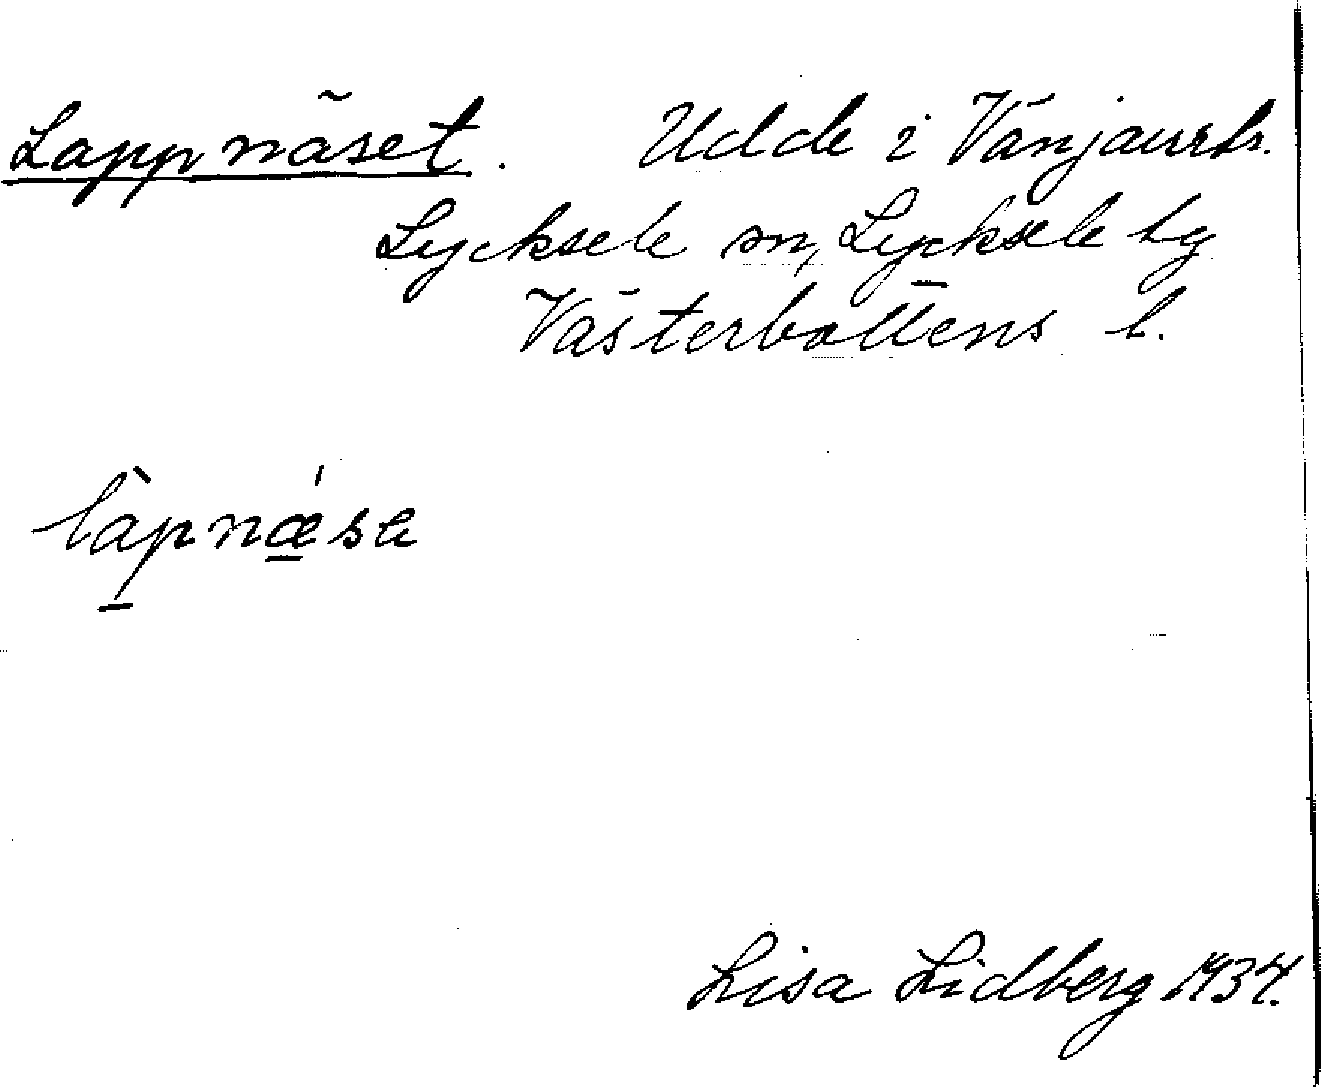 Lappnäset. Udde i Vänjaurtr.
Lycksele sn, Lycksele lg
Västerbottens l.
làpnǽ̱sa
Lisa Lidberg 1934.